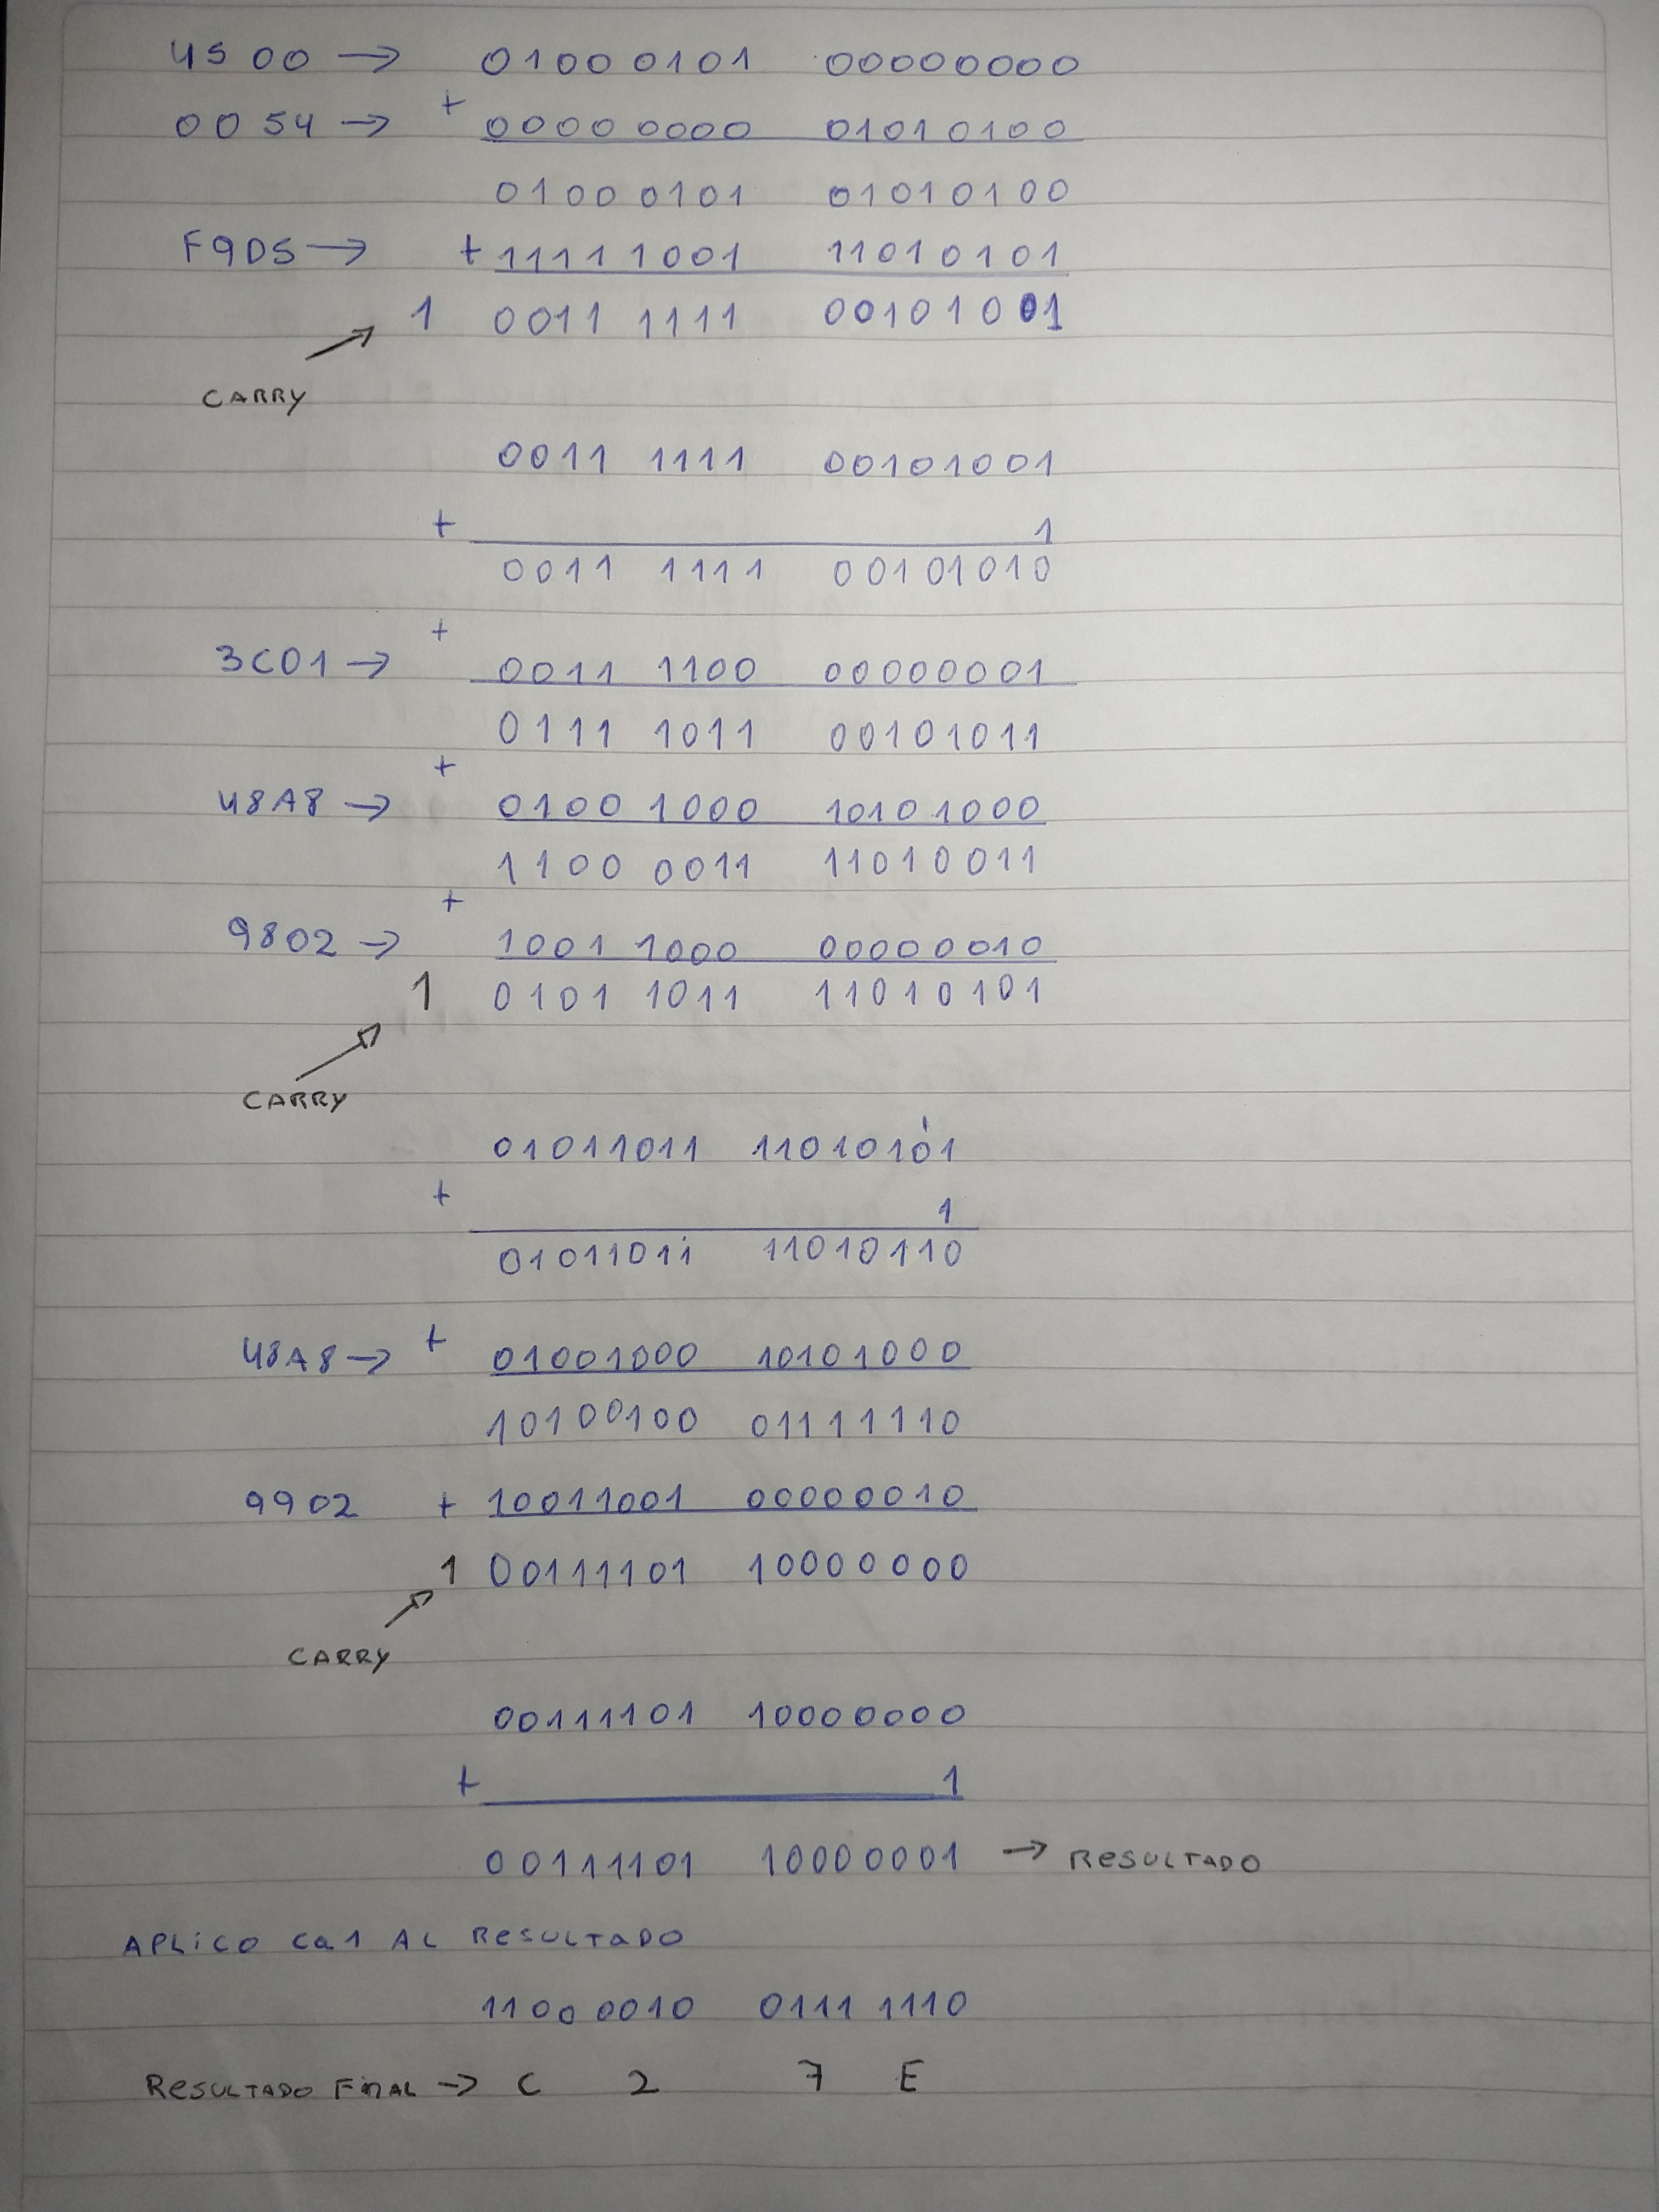 4500 → 01000101 00000000
+
0054 → 00000000 01010100
01000101 01010100
F9D5 → + 11111001 11010101
1 0011 1111 00101001
CARRY
0011 1111 00101001
+ 1
0011 1111 00101010
+
3C01 → 0011 1100 00000001
0111 1011 00101011
+
48A8 → 0100 1000 10101000
1100 0011 11010011
+
9802 → 1001 1000 00000010
1 0101 1011 11010101
CARRY
01011011 11010101
+ 1
01011011 11010110
48A8 → + 01001000 10101000
10100100 01111110
9902 + 10011001 00000010
1 00111101 10000000
CARRY
00111101 10000000
+ 1
00111101 10000001 → RESULTADO
APLICO Ca1 AL RESULTADO
11000010 0111 1110
RESULTADO FINAL → C 2 7 E